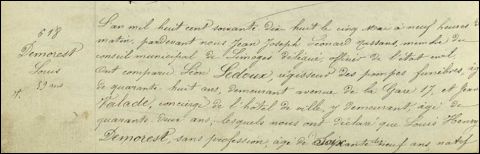 618
Demorest
Louis
59 ans
L'an mil huit cent soixante dix huit le cinq Mai à neuf heures
matin, pardevant nous Jean Joseph Léonard membre du
conseil municipal de Limoges délégué, officier de l'état civil,
Ont comparu Léon Ledoux, régisseur des pompes funèbres, âg
de quarante huit ans, demeurant avenue de la Gare 17, et
Valade, concierge de l'hôtel de ville, y demeurant, âgé de
quarante deux ans, lesquels nous ont déclaré que Louis Henry
Demorest, sans profession, âgé de Soixante neuf ans, natif